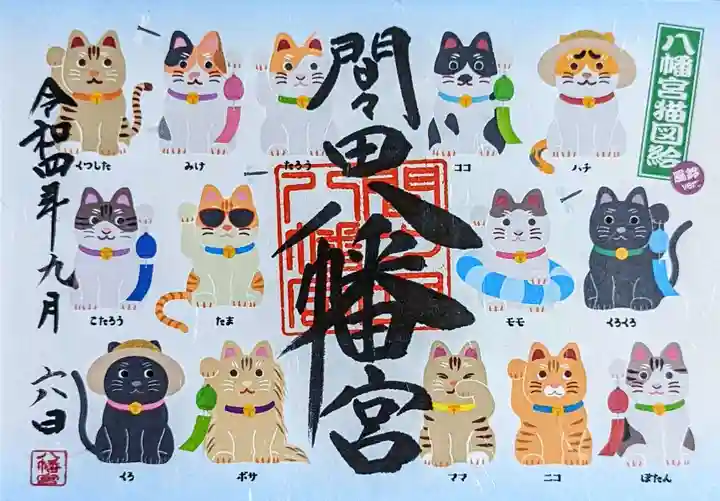 間々田八幡宮
令和四年九月
六日
八幡宮猫図絵
風鈴
ver.
くつした
みけ
たろう
ココ
ハチ
こたろう
たま
モモ
くろくろ
くろ
ボサ
ママ
ニコ
ぼたん
八幡宮